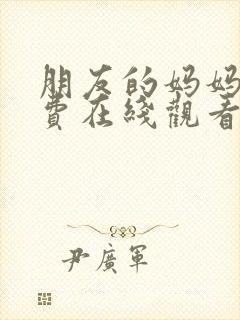 朋友的妈妈
费在线觀看
尹廣軍